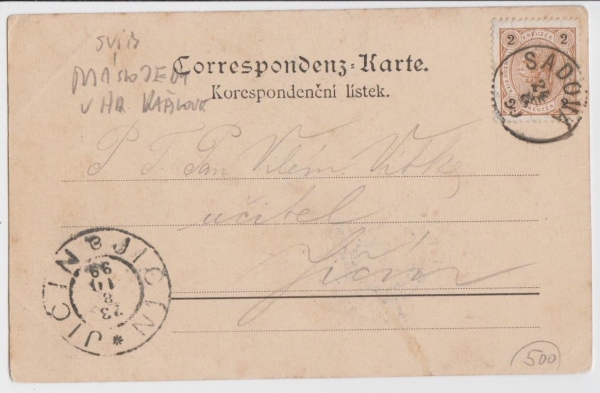 SVIB
MÁSLOJEDY
U HR. KRÁLOVÉ
Correspondenz-Karte.
Korespondenční lístek.
2 KREUZER 2
SADOVA
99
P. T. Pan Vilém Vitke
učitel
Jičín
JIČIN * JIČIN
23
8
99
500